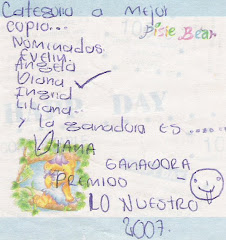 Categoria a mejor
copia...
Pixie Bear
Nominadas
Evelin.
Angela
Diana ✓
Ingrid
Liliana.
y la ganadora es ........
DIANA
GANADORA
PREMIOO
LO NUESTRO
2007.